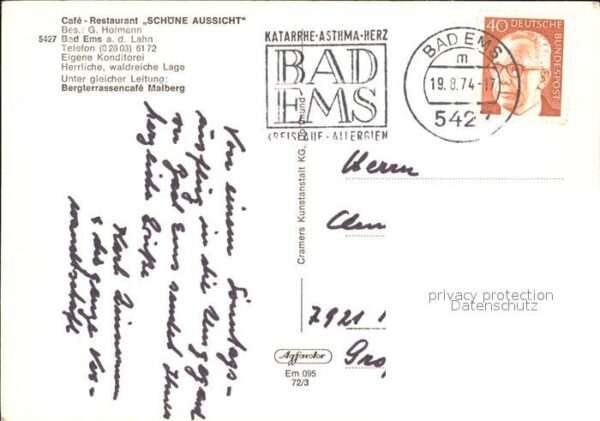 Café - Restaurant „SCHÖNE AUSSICHT"
Bes.: G. Hofmann
5427 Bad Ems a. d. Lahn
Telefon (0 26 03) 61 72
Eigene Konditorei
Herrliche, waldreiche Lage
Unter gleicher Leitung:
Bergterrassencafé Malberg
KATARRHE-ASTHMA-HERZ
BAD
EMS
KREISLAUF-ALLERGIEN
BAD EMS
m
19.8.74-17
5427
40 DEUTSCHE BUNDESPOST
Von einem Sonntags-
ausflug in die Umgegend
von Bad Ems sendet Ihnen
herzliche Grüße
Karl
u. die ganze Ver-
wandtschaft
Cramers Kunstanstalt KG, Dortmund
Herrn
7921
privacy protection
Datenschutz
Agfacolor
Em 095
72/3